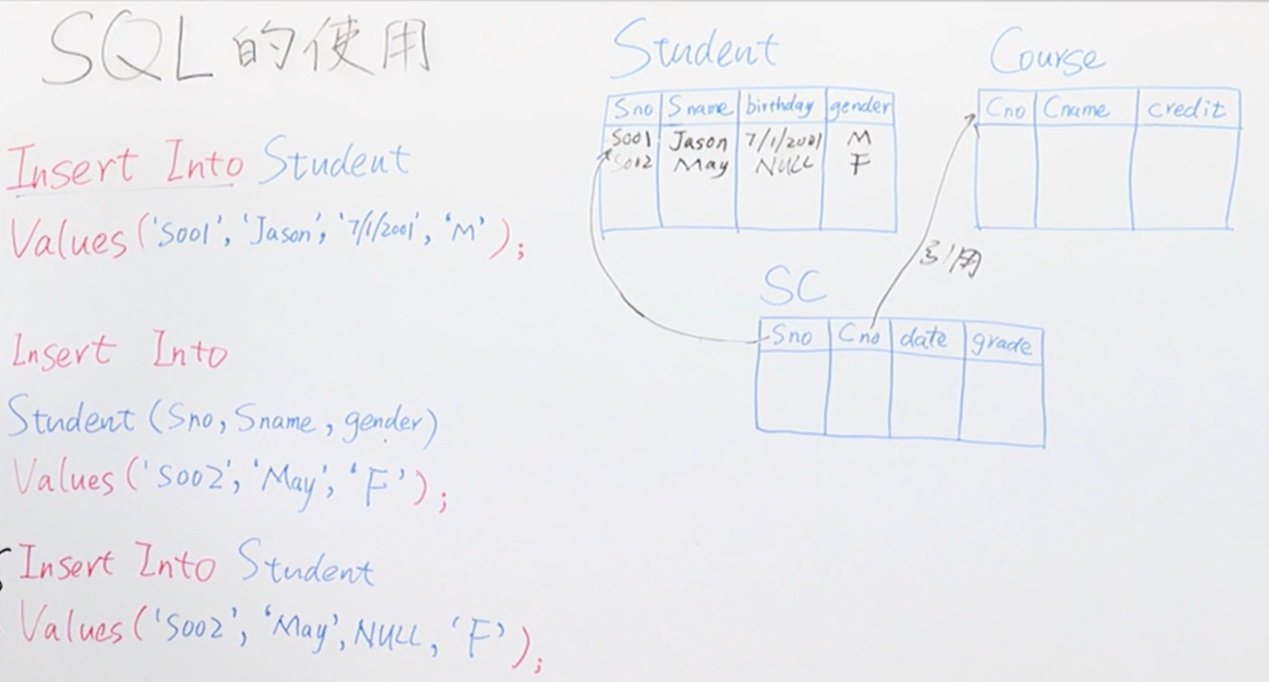 SQL 的使用
Insert Into Student
Values ('S001', 'Jason', '7/1/2001', 'M');
Insert Into
Student (Sno, Sname, gender)
Values ('S002', 'May', 'F');
Insert Into Student
Values ('S002', 'May', NULL, 'F');
Student
Sno Sname birthday gender
S001 Jason 7/1/2001 M
S002 May NULL F
Course
Cno Cname credit
引用
SC
Sno Cno date grade